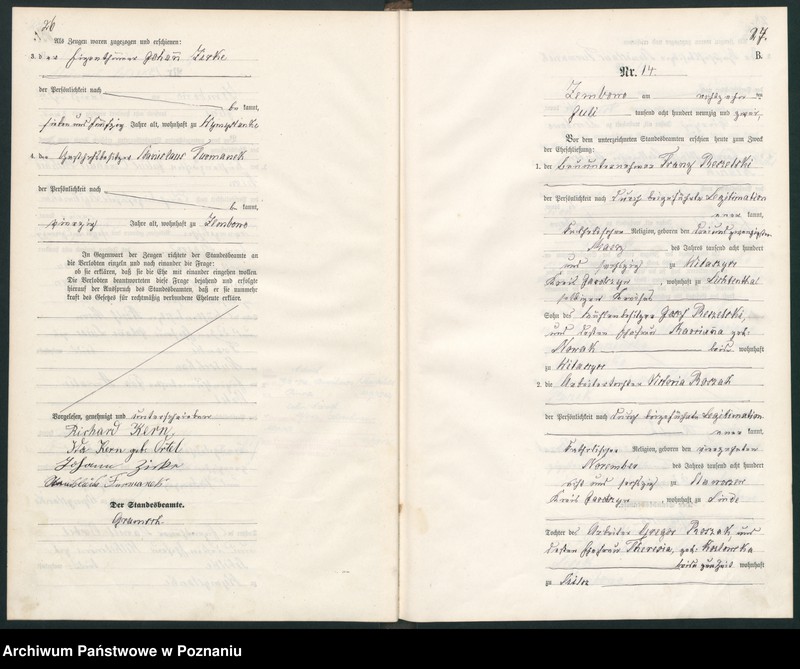 26
Als Zeugen waren zugezogen und erschienen:
3. der Eigenthümer Johann Zirke
der Persönlichkeit nach
be kannt,
sieben und fünfzig Jahre alt, wohnhaft zu
4. der Stanislaus Furmanek
der Persönlichkeit nach
be kannt,
vierzig Jahre alt, wohnhaft zu Zembowo
In Gegenwart der Zeugen richtete der Standesbeamte an
die Verlobten einzeln und nach einander die Frage:
ob sie erklären, daß sie die Ehe mit einander eingehen wollen.
Die Verlobten beantworteten diese Frage bejahend und erfolgte
hierauf der Ausspruch des Standesbeamten, daß er sie nunmehr
kraft des Gesetzes für rechtmäßig verbundene Eheleute erkläre.
Vorgelesen, genehmigt und unterschrieben
Richard Kern
Ida Kern geb. Ortel
Johann Zirke
Stanislaus Furmanek
Der Standesbeamte.
27.
B.
Nr. 14.
Zembowo am achtzehn ten
Juli tausend acht hundert neunzig und zwei.
Vor dem unterzeichneten Standesbeamten erschien heute zum Zweck
der Eheschließung:
1. der Bauunternehmer Franz
der Persönlichkeit nach durch beigefügte Legitimation
aner kannt,
katholischer Religion, geboren den
des Jahres tausend acht hundert
und sechszig zu
Kreis , wohnhaft zu Lichtenthal
selbigen Kreises
Sohn des Mühlenbesitzer Josef
und dessen Ehefrau Marianna geb.
Nowak beide wohnhaft
zu
2. die Arbeitertochter Victoria
der Persönlichkeit nach durch beigefügte Legitimation
aner kannt,
katholischer Religion, geboren den vierzehnten
November des Jahres tausend acht hundert
acht und sechszig zu
Kreis , wohnhaft zu Linde
Tochter des Arbeiter Gregor und
dessen Ehefrau Theresia, geb. Kozlowska
beide wohnhaft
zu
Archiwum Państwowe w Poznaniu